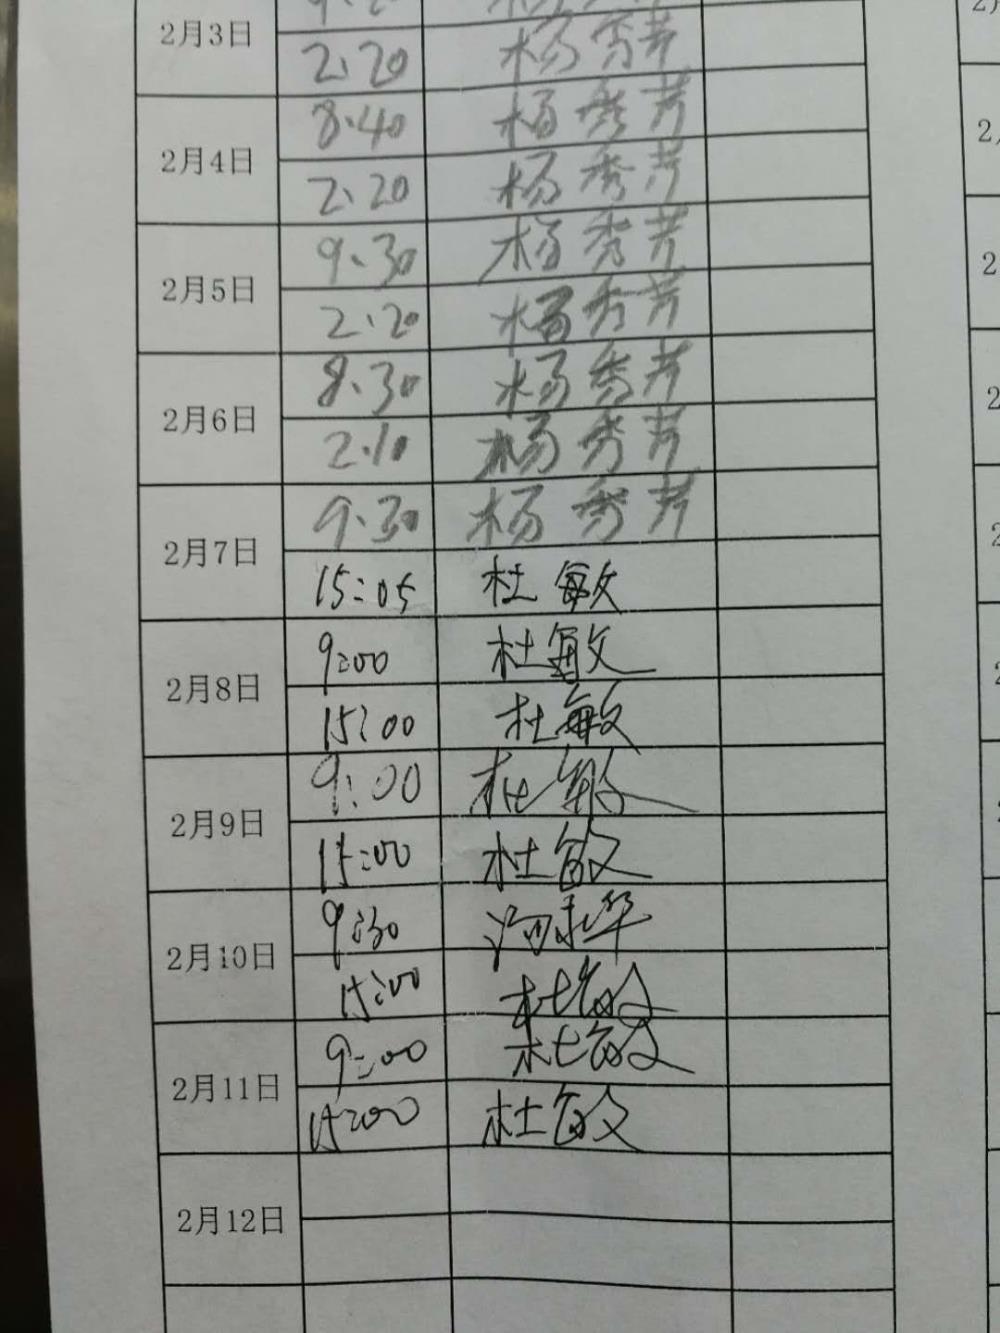 2月3日
2:20 杨秀芹
2月4日
8:40 杨秀芹
2:20 杨秀芹
2月5日
9:30 杨秀芹
2:20 杨秀芹
2月6日
8:30 杨秀芹
2:10 杨秀芹
2月7日
9:30 杨秀芹
15:05 杜敏
2月8日
9:00 杜敏
15:00 杜敏
2月9日
9:00 杜敏
15:00 杜敏
2月10日
9:30
15:00 杜敏
2月11日
9:00 杜敏
15:00 杜敏
2月12日